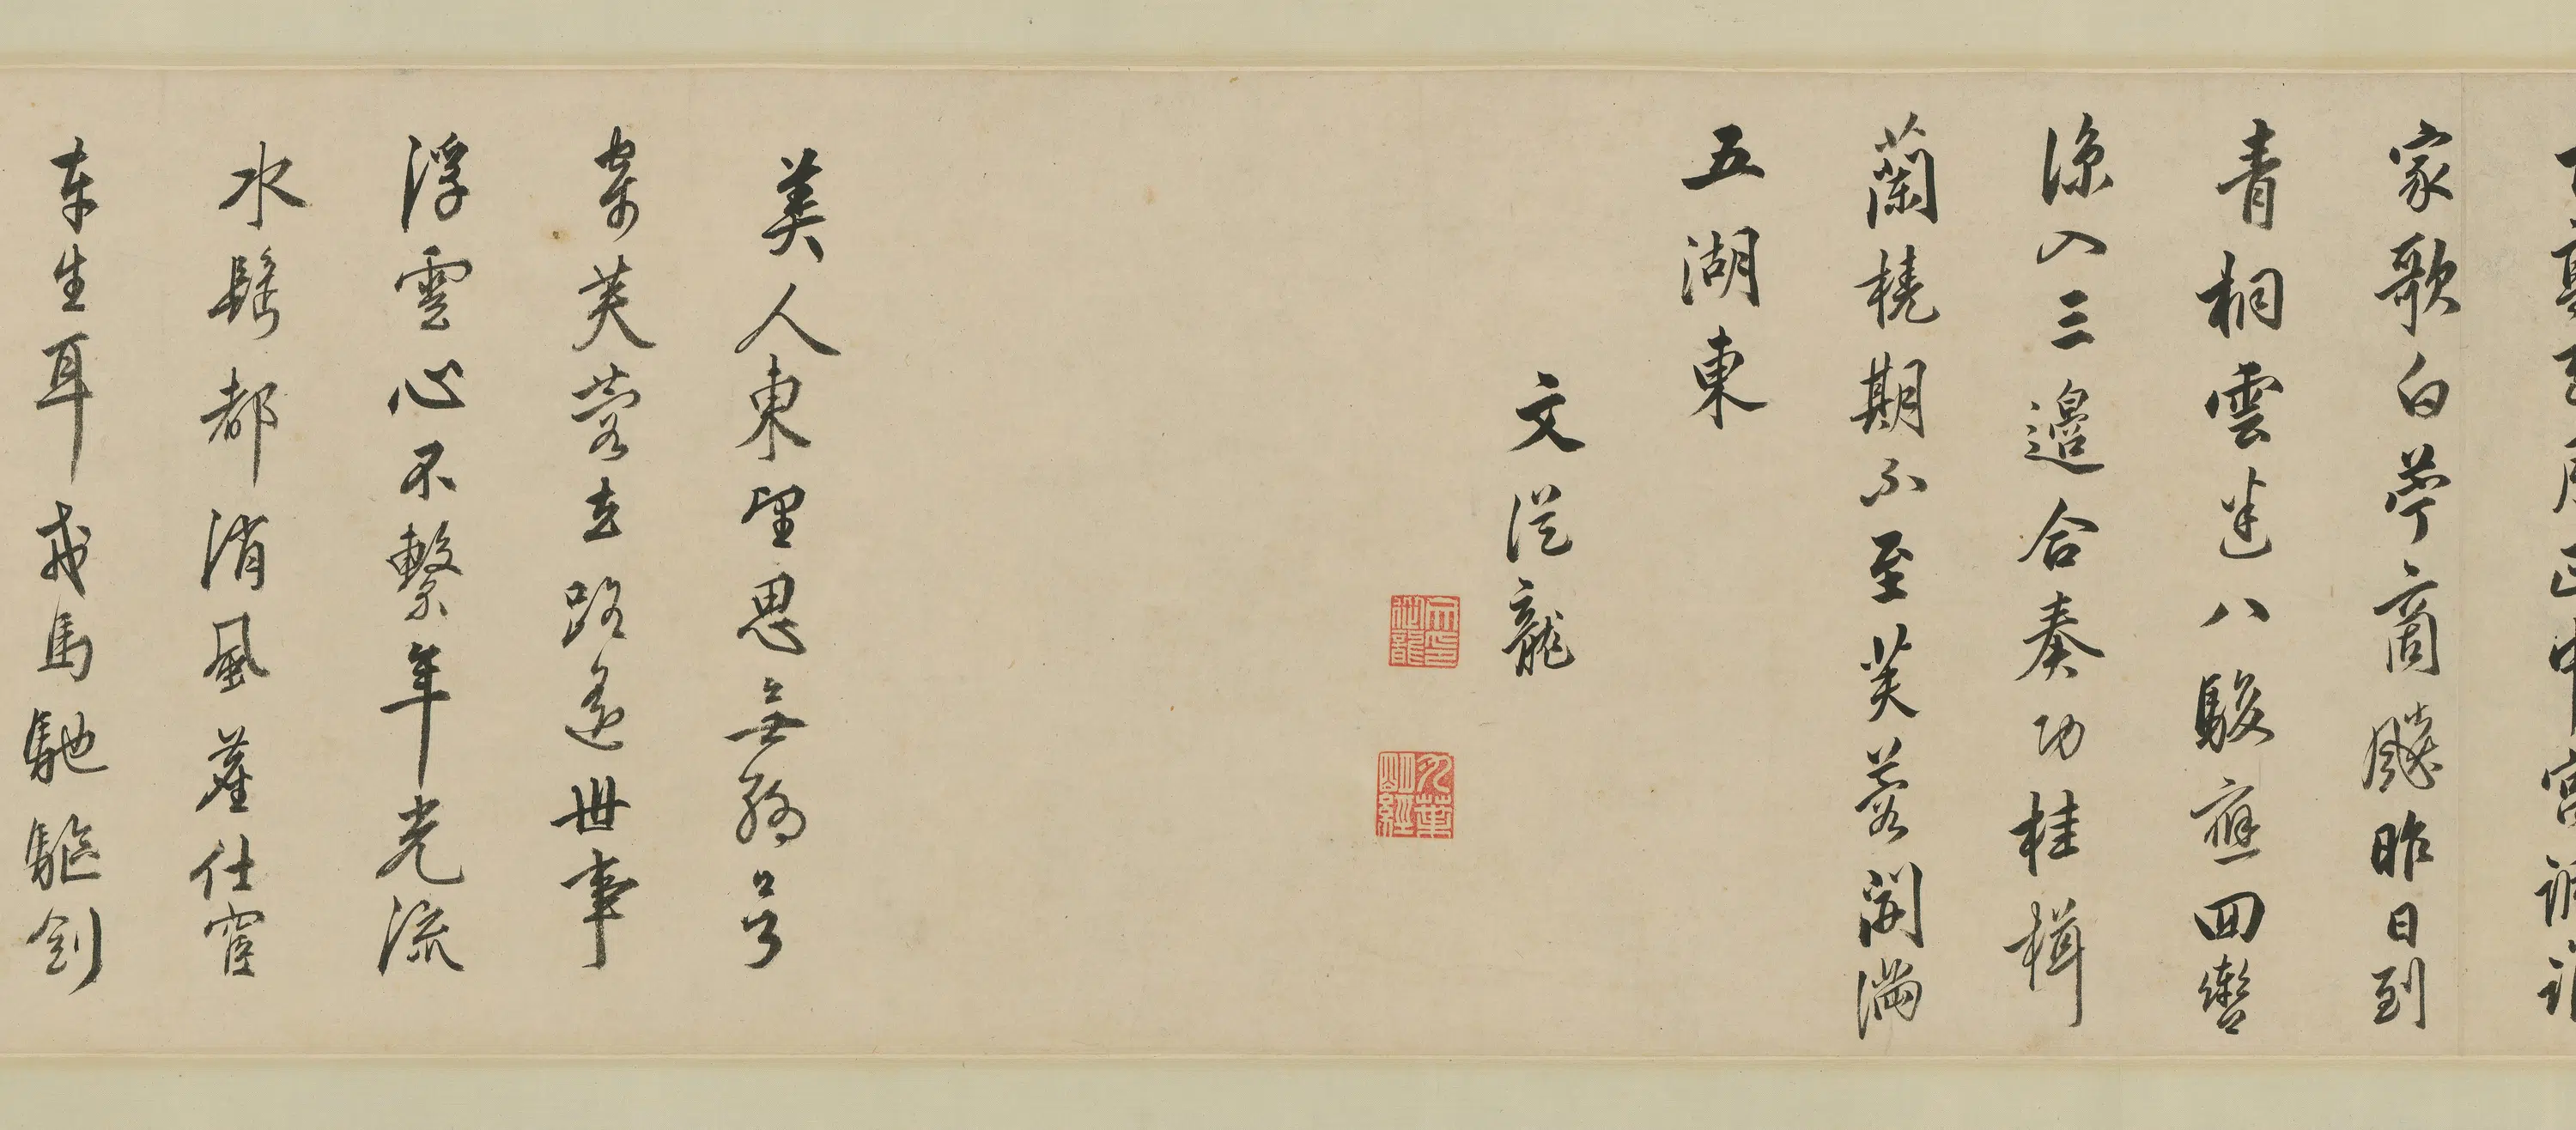 家歌白苧商飈昨日到
青桐雲迷八駿應回轡
涼入三邊合奏功桂楫
蘭橈期不至芙蓉開滿
五湖東
文從龍
文印從龍
九葉明經
美人東望思無窮
芙蓉去路遙世事
浮雲心不繫年光流
水鬢都消風塵仕宦
生耳戎馬馳驅劍